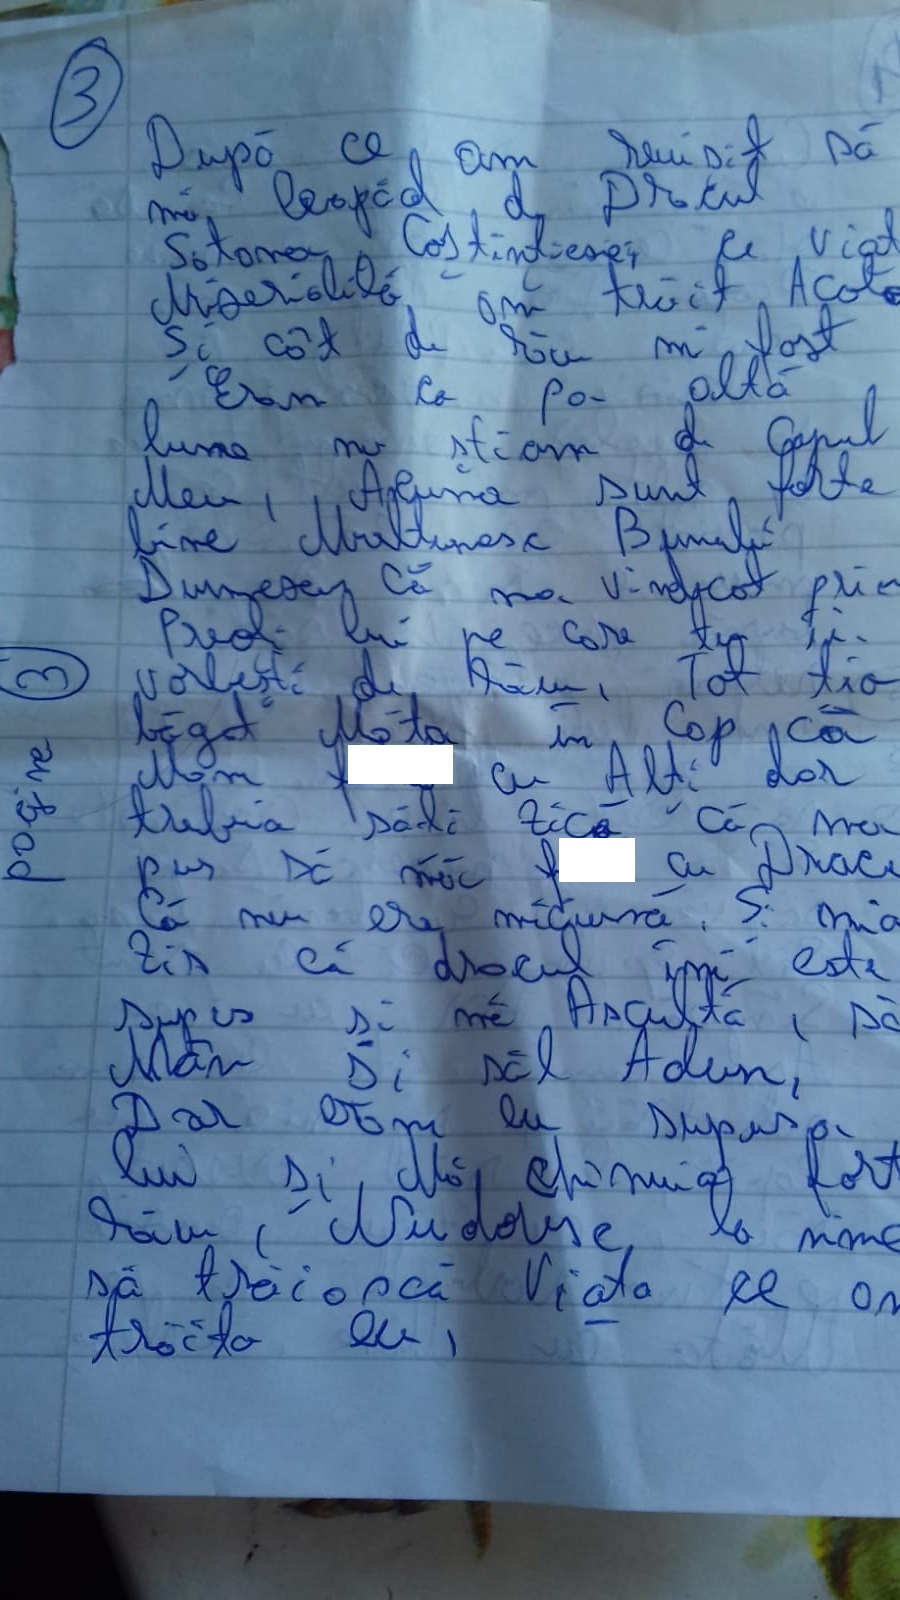 3
După ce am reusit să
mă leapăd d Dracul
Sotomei Costintesei, ce Viat
Miserabilă, am trăit Acolo
Si cât de rău mi fost
Eram ca pa- altă
lume nu stiam de Capul
Meu, Acuma sunt forte
bine Multumesc Bunului
Dumezeu Că ma Vindecat prin
Preoti lui pe care tu ii
vorbesti de Rău, Tot tia
băgat Măta în Cap că
Mam f cu Alti dar
trebuia săti Zică că ma
pus să măc f cu Dracu
Că nu era migură. Si mia
Zis că dracul imi este
supus si mă Ascultă, să
Măn Si săl Adun,
Dar eram eu supusa
lui si Mă chinuia fort
Rău, Nudoresc la nime
să trăiască Viata ce am
trăito eu,
pagina 3